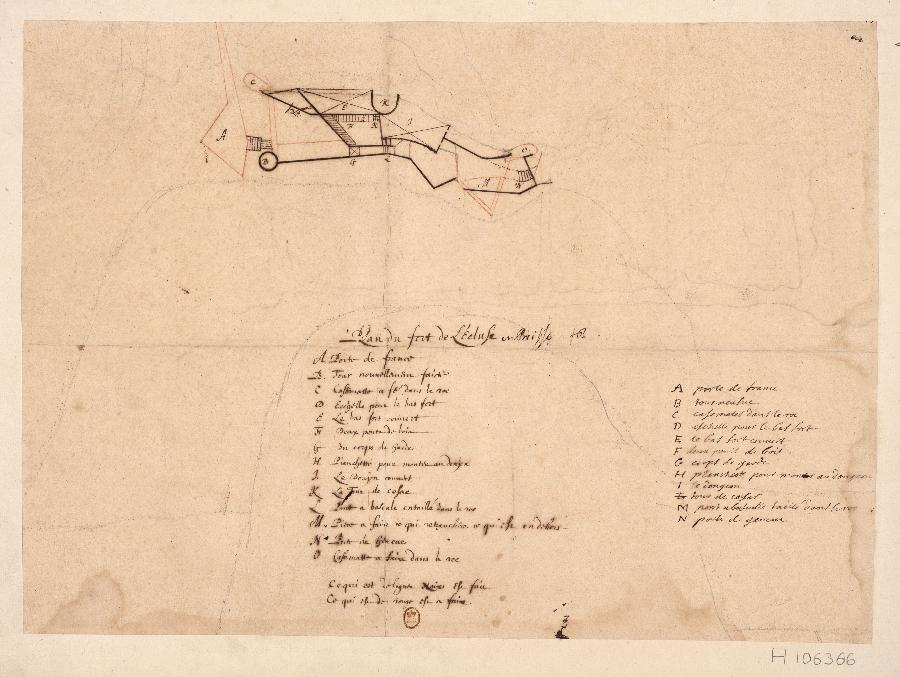 Plan du fort de L'Ecluse
A Porte de france
B Tour nouvellement faicte
C Casematte a fe dans le roc
D Eschelle pour le bas fort
E Le bas fort couvert
F Deux ponts de bois
G Du corps de garde
H Planchette pour monter au donjon
J Le Donjon couvert
K La Tour de cesar
L Pont a bascule entaillé dans le roc
M Piece a faire qui retranchera ce qui est en dehors
N Porte de Geneve
O Casematte a faire dans le roc
Ce qui est de ligne Noire est fait
Ce qui est de rouge est a faire.
A porte de france
B tour neufue
C casemates dans le roc
D eschelle pour le bas fort
E le bas fort couvert
F deux pontz de bois
G corps de garde
H planchette pour monter au dongeon
I le dongeon
tour de cesar
M pont abascule taillé dans le roc
N porte de geneve
A
B
C
E
F
G
J
K
M
O
H 106366